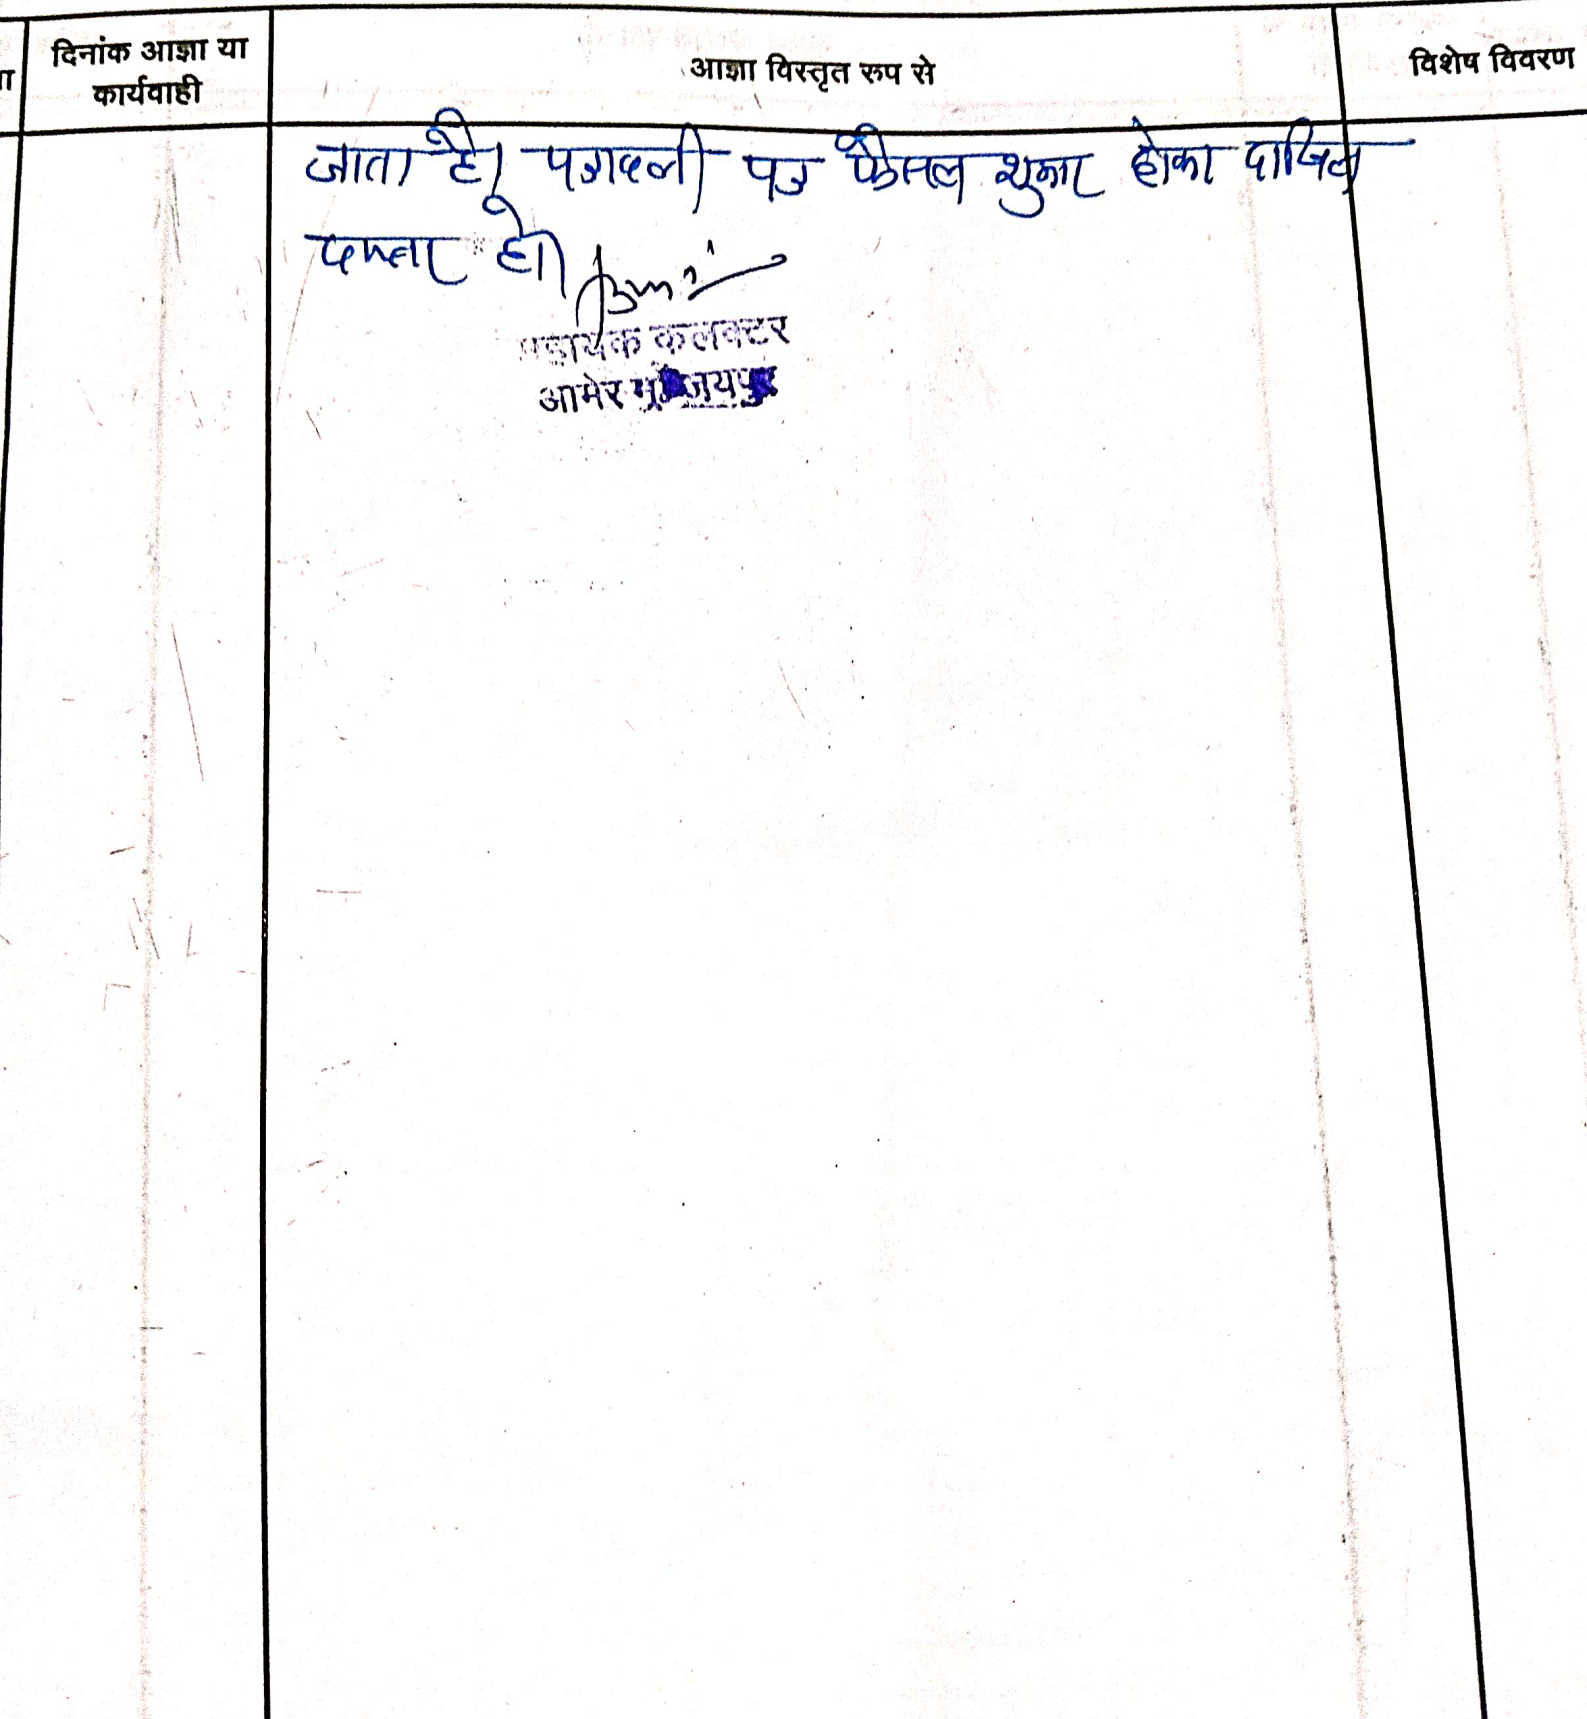 दिनांक आज्ञा या
कार्यवाही
आज्ञा विस्तृत रूप से
विशेष विवरण
जाता है। पत्रावली फैसल शुमार होकर दाखिल
दफ्तर हो।
सहायक कलक्टर
आमेर जयपुर